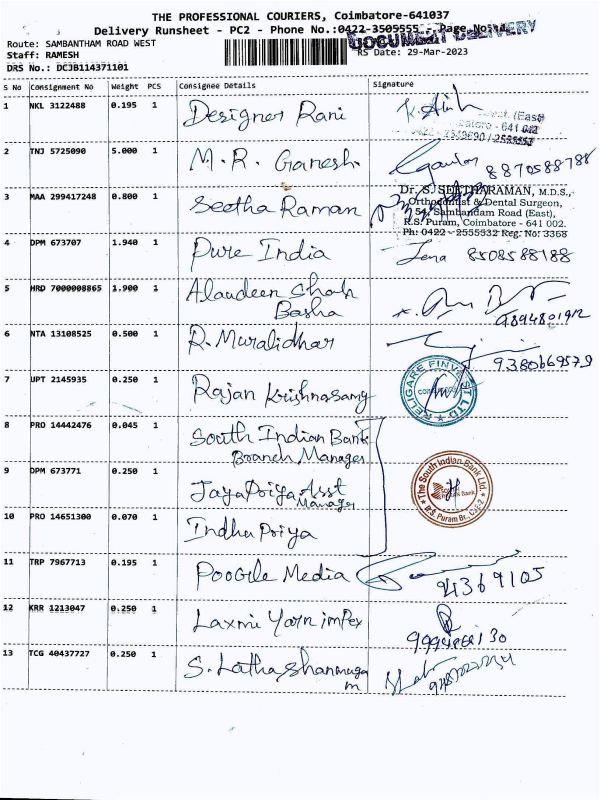 THE PROFESSIONAL COURIERS, Coimbatore-641037
Delivery Runsheet - PC2 - Phone No.:0422-3505555 Page No:
DOCUMENT DELIVERY
Route: SAMBANTHAM ROAD WEST
Staff: RAMESH
RS Date: 29-Mar-2023
DRS No.: DCJB114371101
S No Consignment No Weight PCS Consignee Details Signature
1 NKL 3122488 0.195 1 Designer Rani
(East)
- 641 042
2 TNJ 5725090 5.000 1 M.R. Ganesh 8870588788
3 MAA 299417248 0.800 1 Seetha Raman
Dr. S. SEETHARAMAN, M.D.S.,
Orthodontist & Dental Surgeon,
54, Sambandam Road (East),
R.S. Puram, Coimbatore - 641 002.
Ph: 0422 - 2555532 Reg. No: 3368
4 DPM 673707 1.940 1 Pure India 8508588188
5 HRD 7000008865 1.900 1 Alaudeen Shah
Basha
9894801912
6 NTA 13108525 0.500 1 R. Muralidhar
9380669579
7 UPT 2145935 0.250 1 Rajan Krishnasamy
RELIGARE FINVEST LTD
8 PRO 14442476 0.045 1 South Indian Bank
Branch Manager
The South Indian Bank Ltd
R.S. Puram Br., CBE-2
9 DPM 673771 0.250 1 Jaya Priya Asst
Manager
10 PRO 14651300 0.070 1 Indha Priya
11 TRP 7967713 0.195 1 Poogile Media
12 KRR 1213047 0.250 1 Laxmi Yarn impex
13 TCG 40437727 0.250 1 S. Lathashanmuga
m